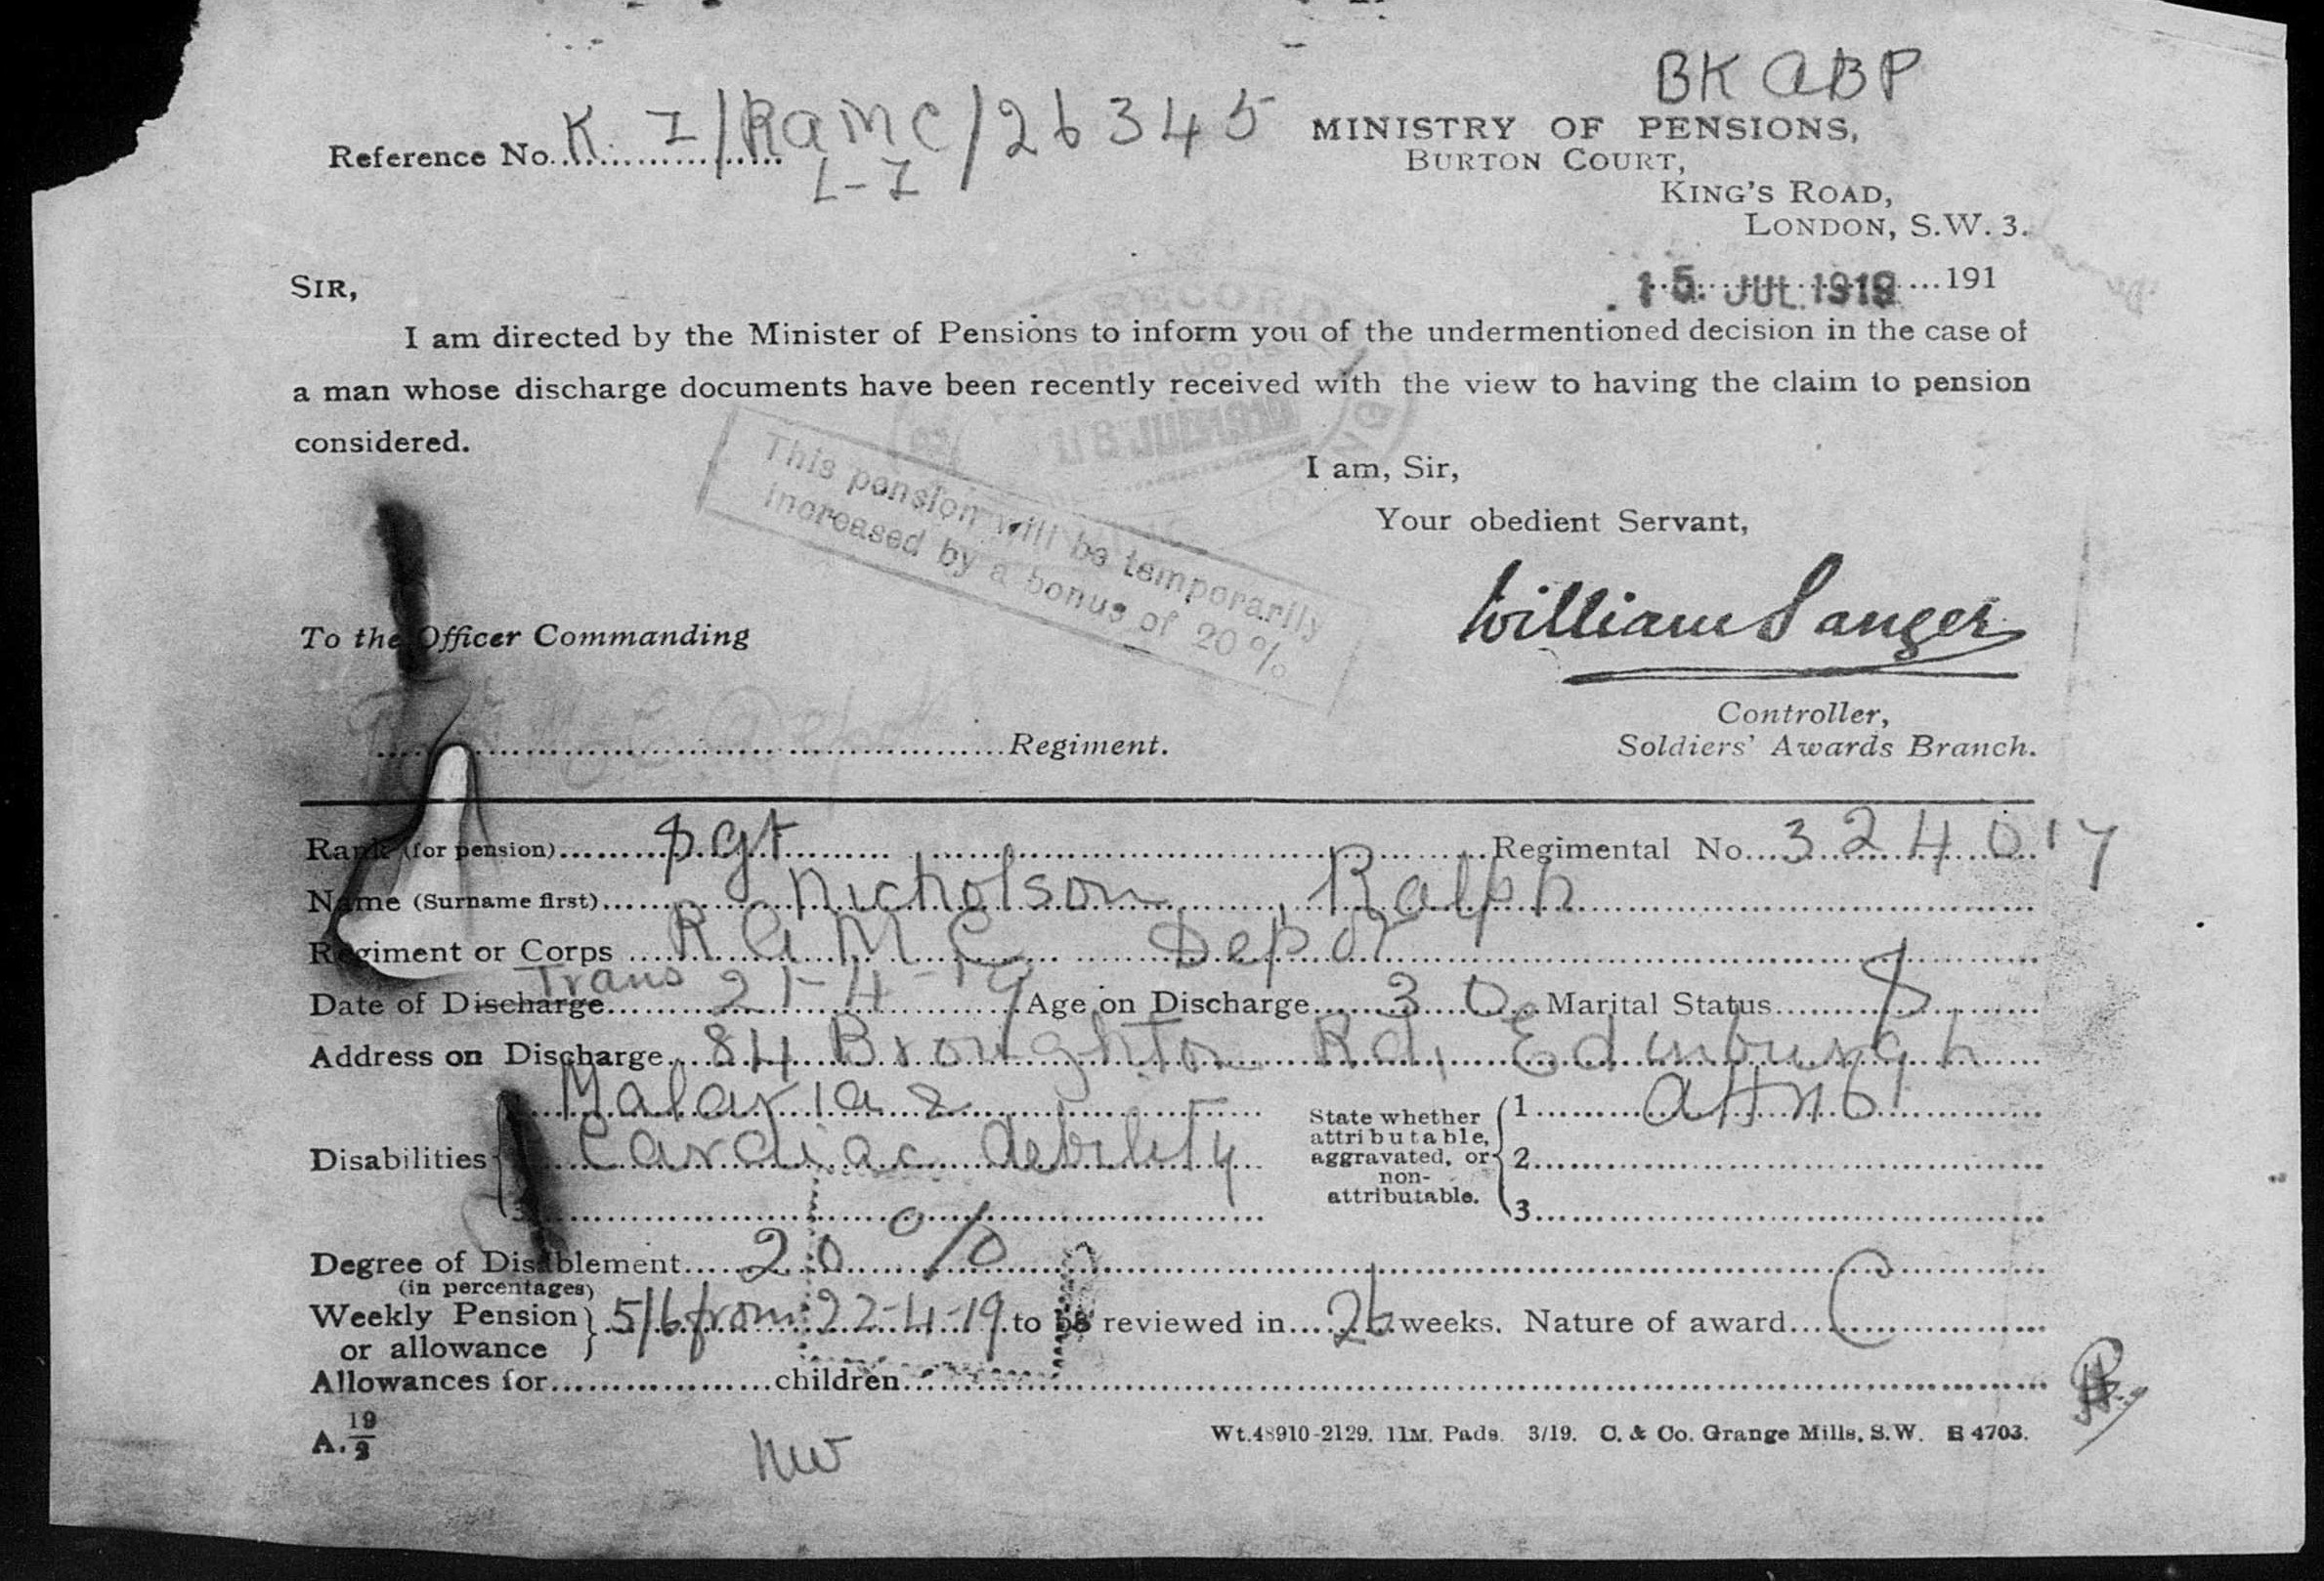 BK ABP
Reference No. K I/RAMC/26345
L-I
MINISTRY OF PENSIONS,
BURTON COURT,
KING'S ROAD,
LONDON, S.W. 3.
15 JUL 1919 191
SIR,
I am directed by the Minister of Pensions to inform you of the undermentioned decision in the case of
a man whose discharge documents have been recently received with the view to having the claim to pension
considered.
RECORD
This pension will be temporarily
increased by a bonus of 20%
I am, Sir,
Your obedient Servant,
William Sanger
Controller,
Soldiers' Awards Branch.
To the Officer Commanding
Regiment.
Rank (for pension) Sgt Regimental No. 324017
Name (Surname first) Nicholson, Ralph
Regiment or Corps RAMC Depot
Trans
Date of Discharge 21-4-19 Age on Discharge 30 Marital Status S
Address on Discharge 84 Broughton Rd, Edinburgh
Malaria &
Disabilities Cardiac debility
3
State whether
attributable,
aggravated, or
non-
attributable.
1 Attrib
2
3
Degree of Disablement 20 %
(in percentages)
Weekly Pension
or allowance } 5/6 from 22-4-19 to be reviewed in 26 weeks. Nature of award C
Allowances for children
A. 19/3
Wt.48910-2129. 11M. Pads. 3/19. C. & Co. Grange Mills, S.W. E 4703.
NW